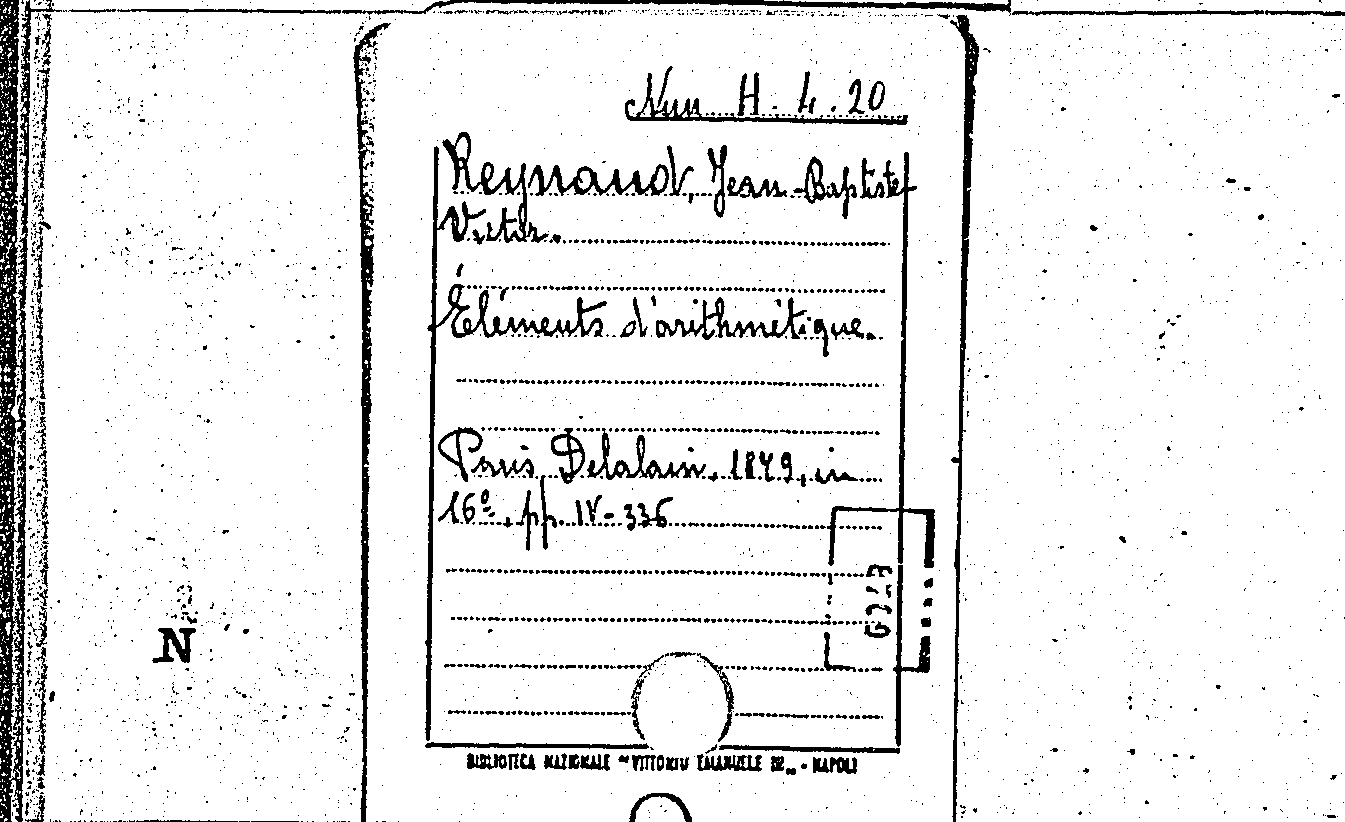 Nun H. 4. 20
Reynaud, Jean-Baptiste
Victor.
Éléments d'arithmétique.
Paris Delalain, 1879, in
16º, pp. IV-336
N
BIBLIOTECA NAZIONALE "VITTORIO EMANUELE III" - NAPOLI